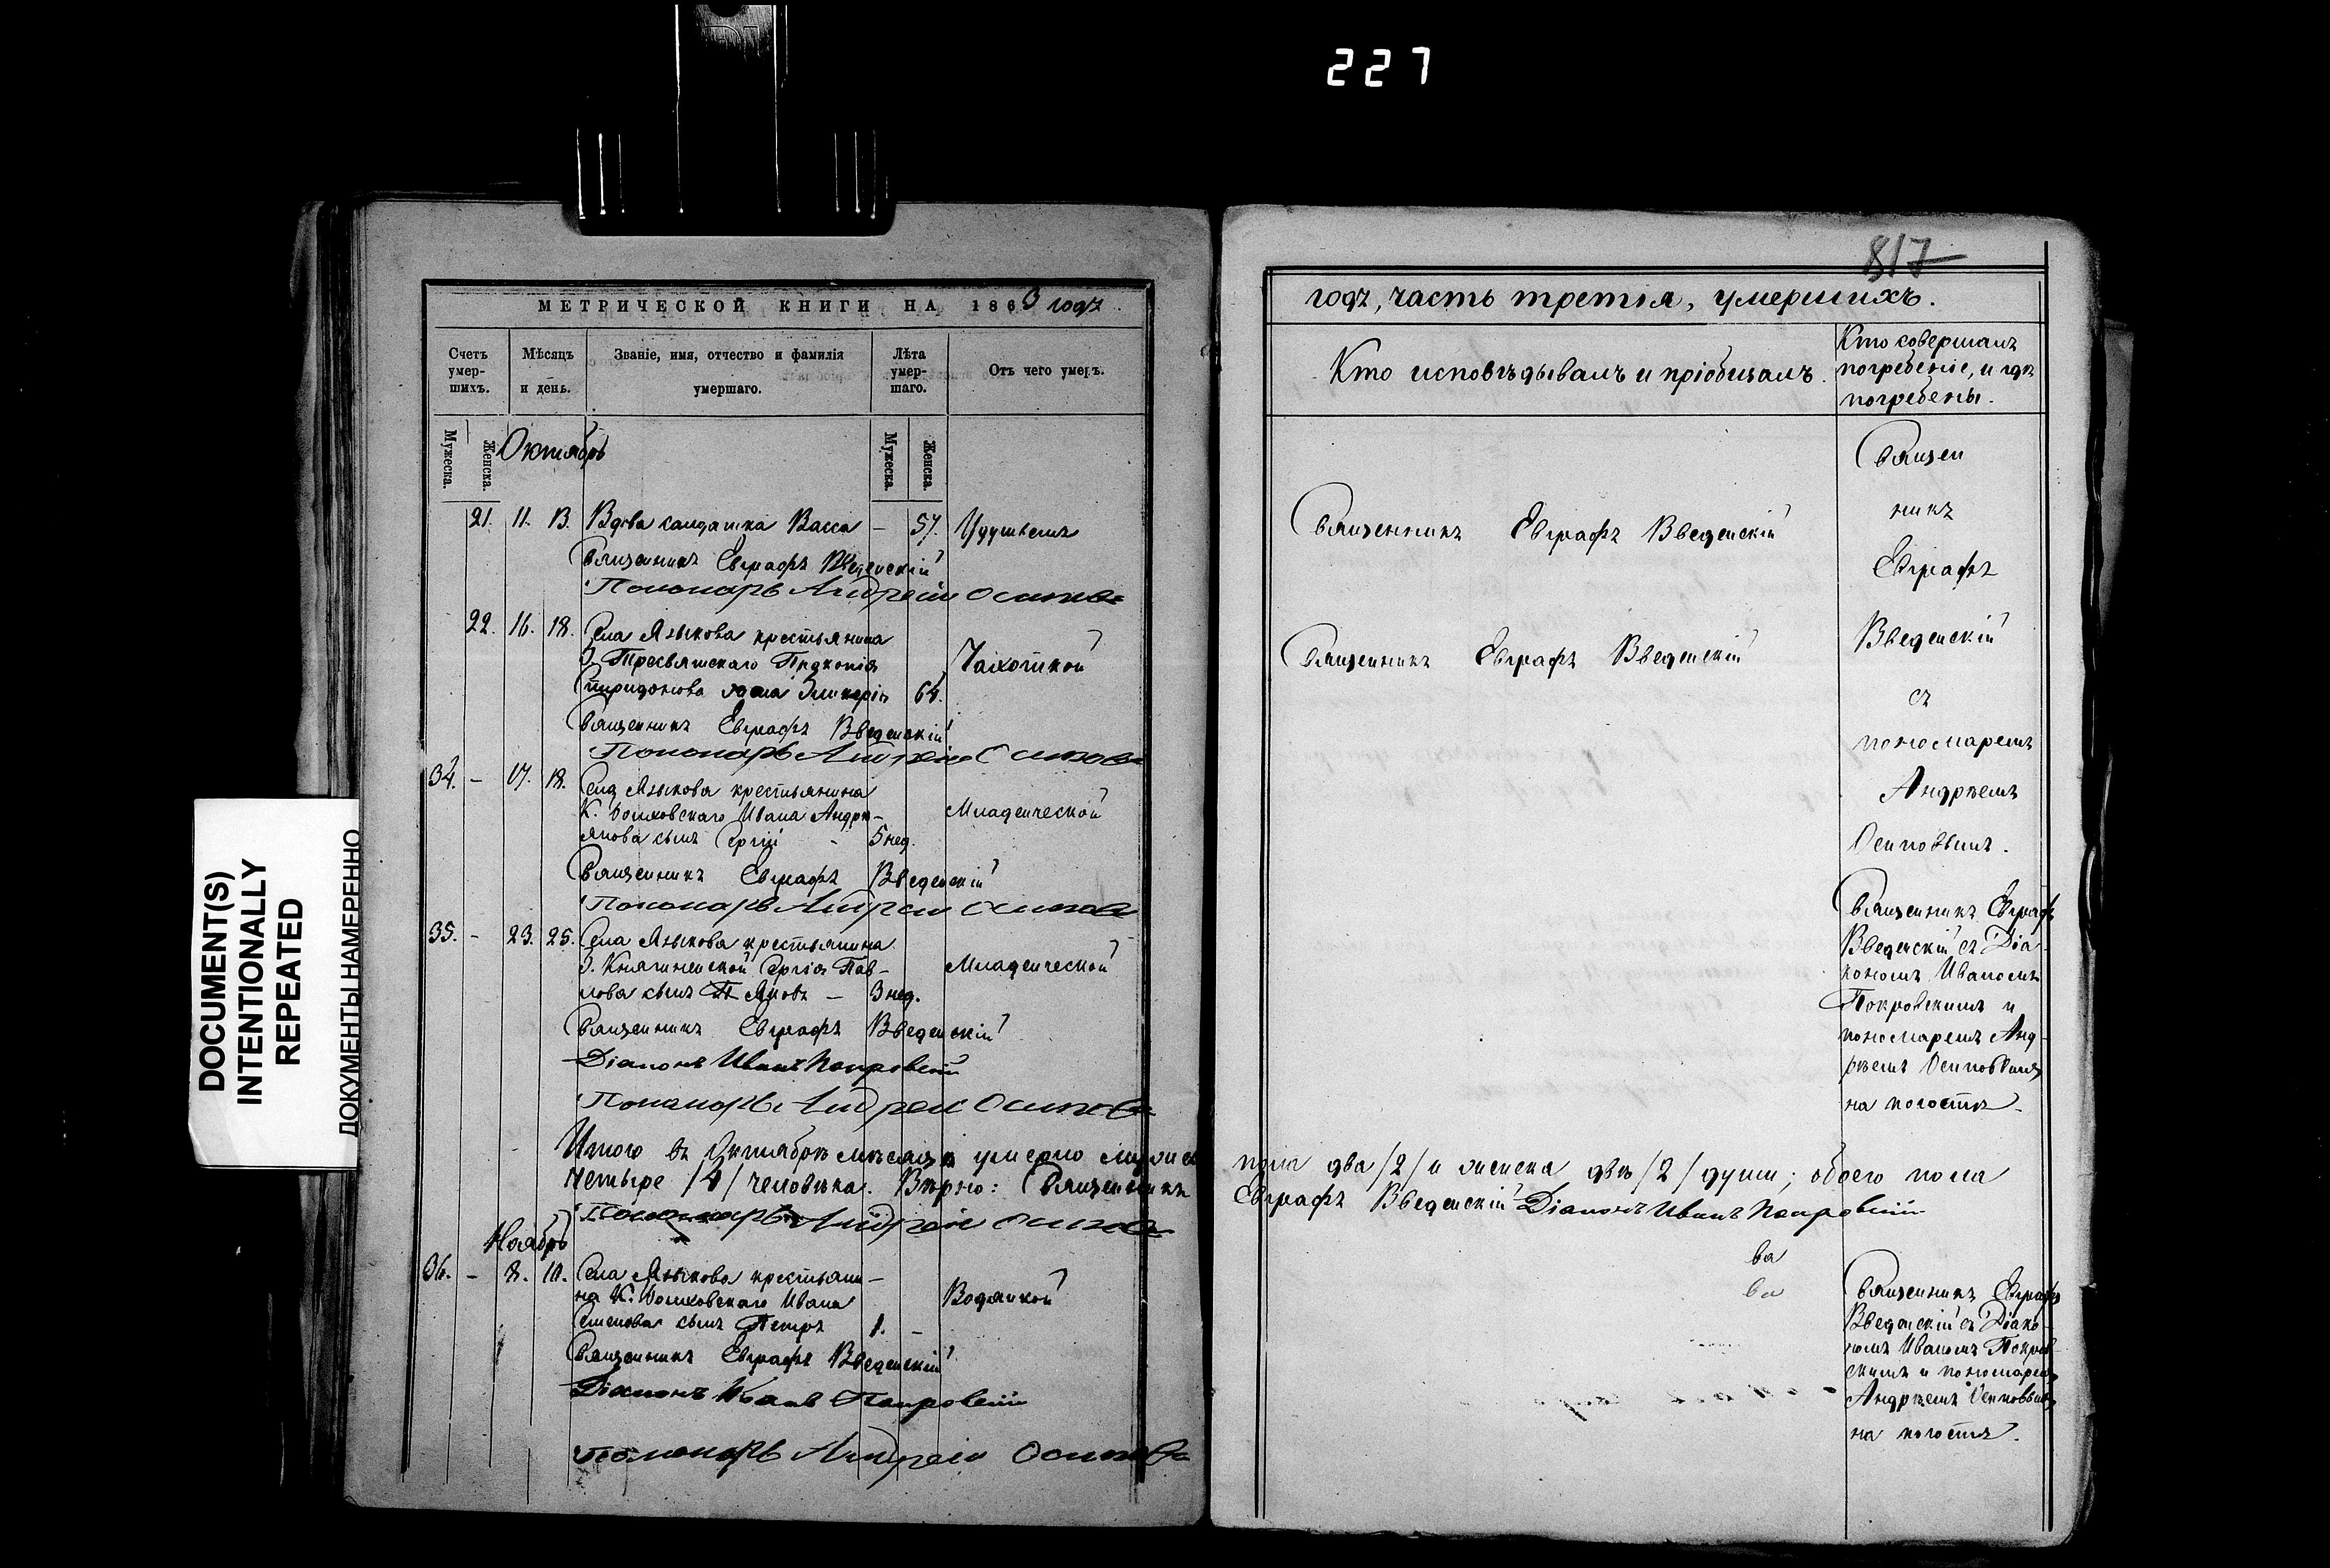 227
817
МЕТРИЧЕСКОЙ КНИГИ НА 1863 годъ
Счетъ умер-шихъ.
Мѣсяцъ и день.
Званіе, имя, отчество и фамилія умершаго.
Лѣта умер-шаго.
Отъ чего умеръ.
Мужеска.
Женска.
Мужеска.
Женска.
Октябрь
21. 11. 13. Вдова солдатка Васса – 57.
Священникъ Евграфъ Введенскій
Пономарь Андрей Осиповъ
22. 16. 18. Села Языкова крестьянина
Чахоткой
Спиридонова жена Гликерія 64.
Священникъ Евграфъ Введенскій
Пономарь Андрей Осиповъ
34. – 17. 18. Села Языкова крестьянина
Ивана Андрі-
Младенческой
янова сынъ Сергій – 5 нед.
Священникъ Евграфъ Введенскій
Пономарь Андрей Осиповъ
35. – 23. 25. Села Языкова крестьянина
Г. Княгининской Сергія Пав-
Младенческой
лова сынъ Яковъ – 3 нед.
Священникъ Евграфъ Введенскій
Діаконъ Иванъ Покровскій
Пономарь Андрей Осиповъ
Итого въ Октябрѣ мѣсяцѣ умерло мужеска
четыре /4/ человѣка. Вѣрно: Священникъ
Пономарь Андрей Осиповъ
Ноябрь
36. – 8. 10. Села Языкова крестьяни-
на Ивана
Водянкой
Семенова сынъ Петръ 1. –
Священникъ Евграфъ Введенскій
Діаконъ Иванъ Покровскій
Пономарь Андрей Осиповъ
годъ, часть третія, умершихъ.
Кто исповѣдывалъ и пріобщалъ.
Кто совершалъ
погребеніе, и гдѣ
погребены.
Священникъ Евграфъ Введенскій
Священникъ Евграфъ Введенскій
Священ
никъ
Евграфъ
Введенскій
съ
пономаремъ
Андреемъ
Осиповымъ.
Священникъ Евграфъ
Введенскій съ Діа-
кономъ Иваномъ
Покровскимъ и
пономаремъ Анд-
реемъ Осиповымъ
на погостѣ.
пола два /2/ и женска двѣ /2/ души; обоего пола
Евграфъ Введенскій Діаконъ Иванъ Покровскій
ва
ва
Священникъ Евграфъ
Введенскій съ Діако-
номъ Иваномъ Покров-
скимъ и пономаремъ
Андреемъ Осиповымъ
на погостѣ.
DOCUMENT(S)
INTENTIONALLY
REPEATED
ДОКУМЕНТЫ НАМЕРЕННО